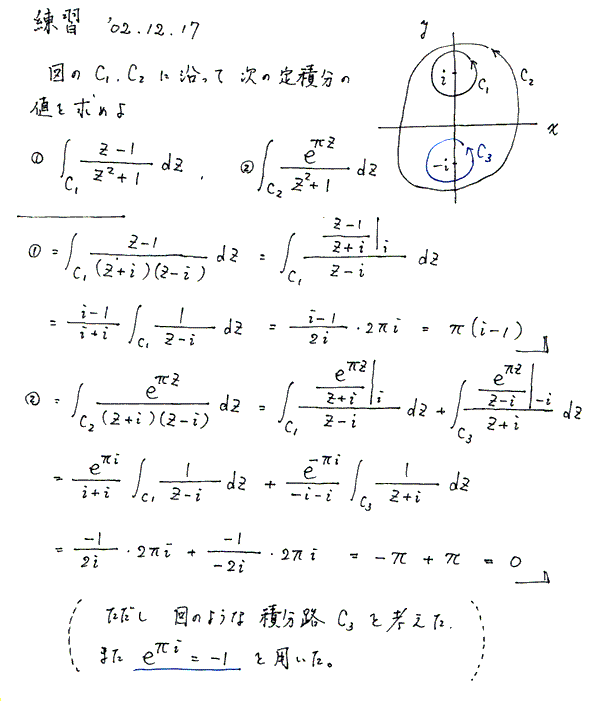 練習 '02.12.17
図の C₁, C₂ に沿って 次の定積分の
値を求めよ
① ∫_{C₁} (z-1)/(z²+1) dz , ② ∫_{C₂} e^{πz}/(z²+1) dz
y
i C₁ C₂
x
-i C₃
① = ∫_{C₁} (z-1)/((z+i)(z-i)) dz = ∫_{C₁} ((z-1)/(z+i)|_i)/(z-i) dz
= (i-1)/(i+i) ∫_{C₁} 1/(z-i) dz = (i-1)/(2i) · 2πi = π(i-1)
② = ∫_{C₂} e^{πz}/((z+i)(z-i)) dz = ∫_{C₁} (e^{πz}/(z+i)|_i)/(z-i) dz + ∫_{C₃} (e^{πz}/(z-i)|_{-i})/(z+i) dz
= e^{πi}/(i+i) ∫_{C₁} 1/(z-i) dz + e^{-πi}/(-i-i) ∫_{C₃} 1/(z+i) dz
= (-1)/(2i) · 2πi + (-1)/(-2i) · 2πi = -π + π = 0
(ただし 図のような 積分路 C₃ を考えた.
また e^{πi} = -1 を用いた。)